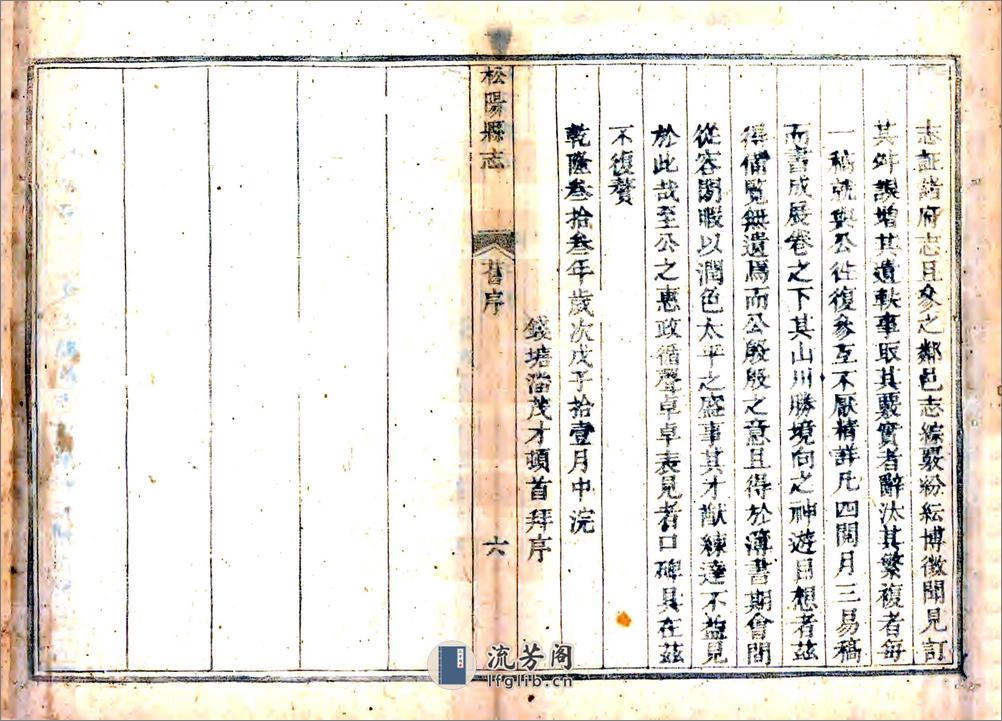 志証諸府志且參之鄰邑志綜覈紛紜博徵聞見訂
其舛誤增其遺軼事取其覈實者辭汰其繁複者每
一稿就與公往復參互不厭精詳凡四閱月三易稿
而書成展卷之下其山川勝境向之神遊目想者茲
得備覽無遺焉而公殷殷之意且得於簿書期會間
從容閒暇以潤色太平之盛事其才猷練達不益見
於此哉至公之惠政循聲卓卓表見者口碑具在茲
不復贅
乾隆叁拾叁年歲次戊子拾壹月中浣
錢塘潘茂才頓首拜序
松陽縣志
舊序
六
流芳阁
lfglib.cn